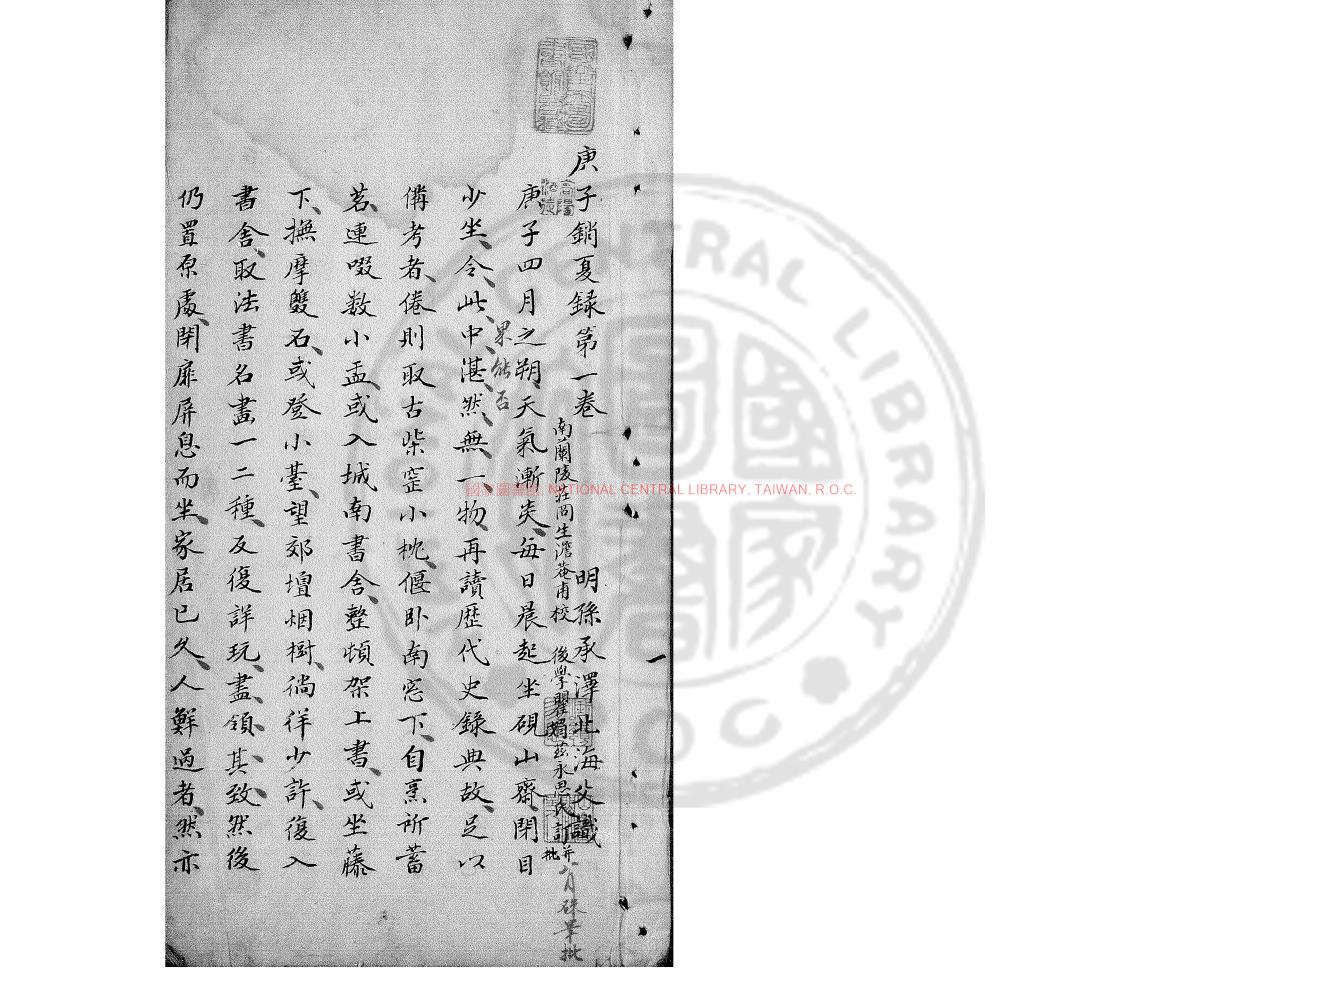 庚子銷夏録第一卷
明孫承澤北海父識
南蘭陵莊冋生澹菴甫校
後學翟 茲永思氏訂并批
八月硃筆批
庚子四月之朔天氣漸炎每日晨起坐硯山齋閉目
果能否
少坐令此中湛然無一物再讀歷代史錄典故足以
備考者倦則取古柴窑小枕偃卧南窓下自烹所蓄
茗連啜数小盂或入城南書舍整頓架上書或坐藤
下撫摩雙石或登小臺望郊壇烟樹徜徉少許復入
書舍取法書名畫一二種反復詳玩盡領其致然後
仍置原處閉扉屏息而坐家居已久人鮮過者然亦
國立中央圖書館藏書
一
NATIONAL CENTRAL LIBRARY, TAIWAN, R.O.C.
CENTRAL LIBRARY